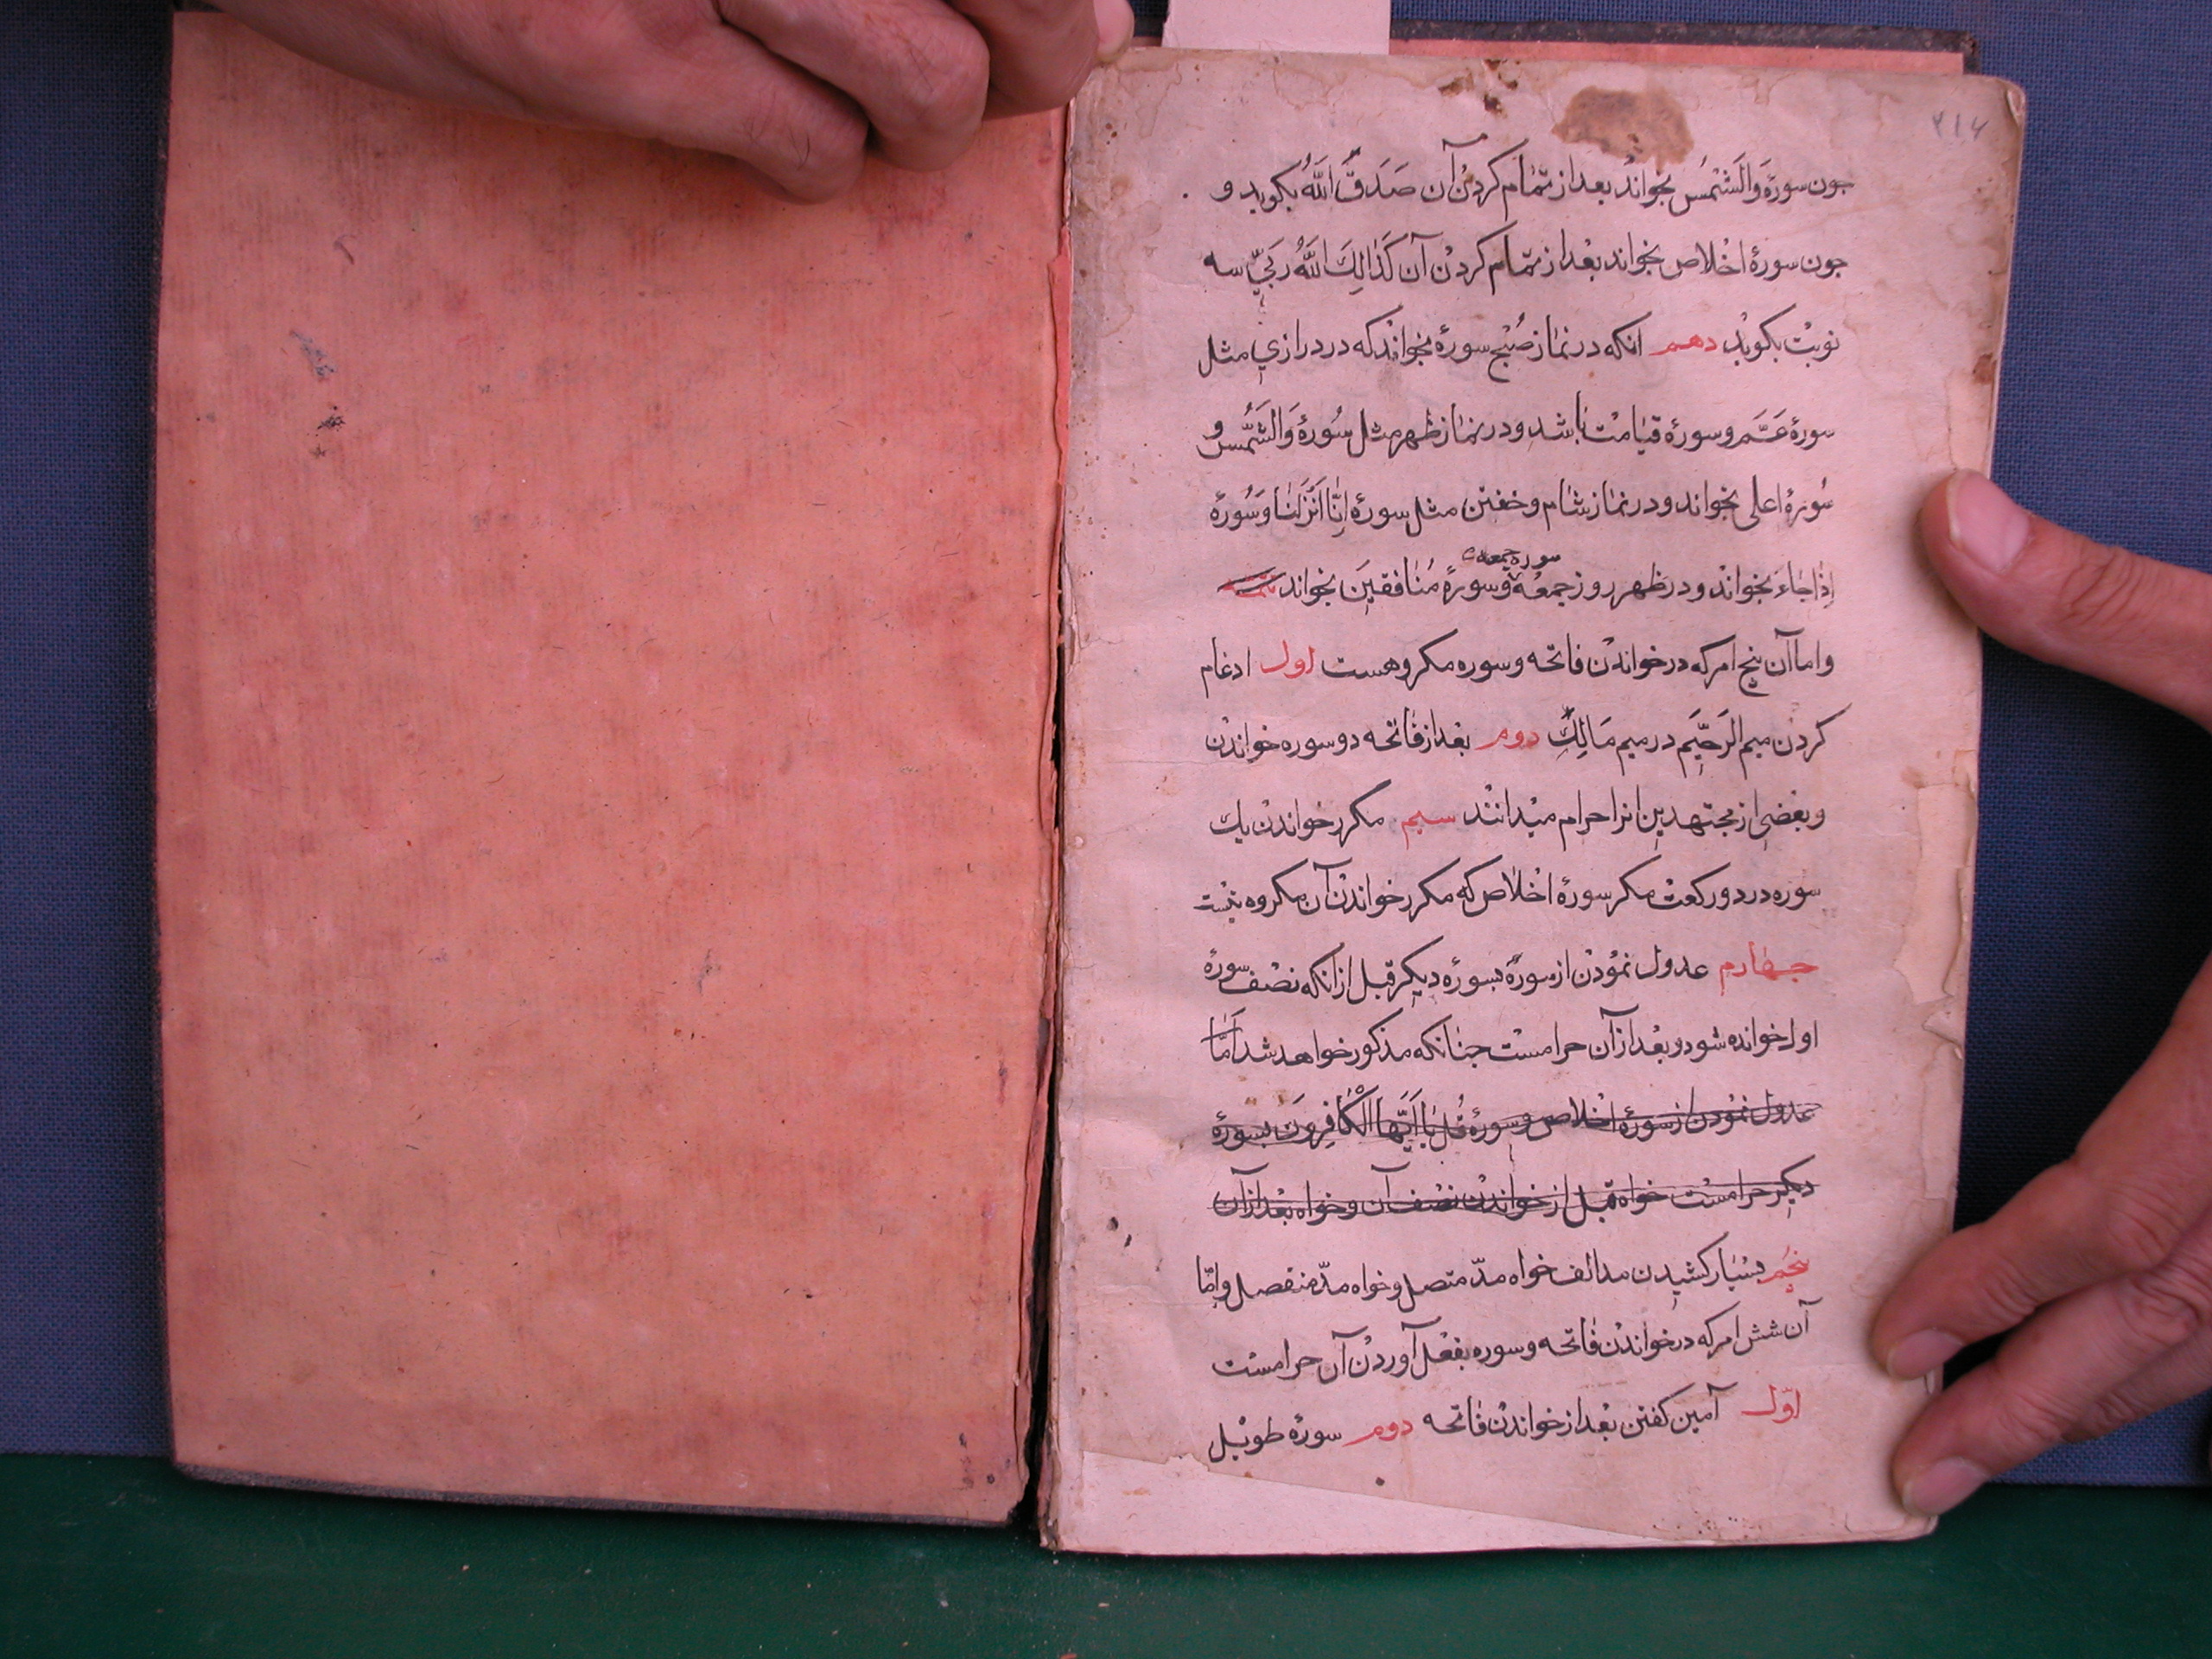 ۲۱۶
جون سورهٔ وَالشَّمْسُ بخواند بعد از تمام کردن آن صَدَقَ اللّٰهُ بکوید و
جون سورهٔ اخْلاص بخواند بعْد از تمام کردنْ آن کَذَالِكَ اللّٰهُ رَبّي سه
نوبتْ بکویدْ دهم انکه در نماز صُبْح سورهٔ بخوانْد که در درازي مثل
سورهٔ عَمَّ و سورهٔ قیامتْ باشد و در نماز ظهر مثل سُورهٔ وَالشَّمْس و
سُورهٔ اعلی بخواند و در نماز شام و خفتن مثل سورهٔ اِنَّا اَنْزَلْنَا وَ سُورهٔ
سوره جمعه
اِذَا جَاءَ بخوانْد و در ظهر روز جمعُه و سورهٔ مُنَافقینَ بخواند
و اما آن پنج امر که در خواندن فاتحه و سوره مکروهست اول ادغام
کردن میم الرَحیَّم در میم مَالِكِ دوم بعْد از فاتحه دو سوره خواندنْ
و بعْضي از مجتهدین انرا حرام میْدانند سیم مکرر خواندنْ یك
سوره در دو رکعت مکر سورهٔ اخْلاص که مکرر خواندنْ آن مکروه نیْست
جهارم عدول نموُدنْ از سورهٔ بسورهٔ دیکر قبل از انکه نصْف سورهٔ
اول خوانده شود و بعْد از آن حرامسْت جنانکه مذکور خواهد شد اَمّا
عدول نموُدن از سورهٔ اخْلاص و سورهٔ قُل یَا اَیُّهَا الْکَافِروُنَ بسورهٔ
دیکر حرامسْت خواه قبل از خواندنْ نصْف آن و خواه بعْد از آن
پنجُم بسْیار کشیدن مد الف خواه مدّ متصل و خواه مدّ منفصل و امّا
آن شش امر که در خواندنْ فاتحه و سوره بفعْل آوردنْ آن حرامسْت
اوّل آمین کفتن بعْد از خواندنْ فاتحه دوم سورهٔ طویْل